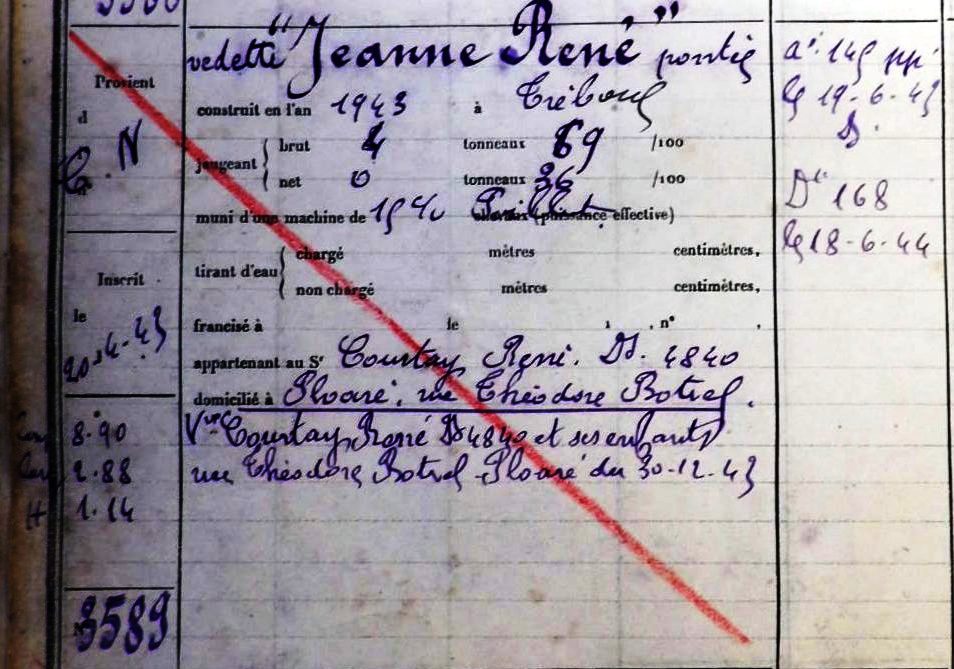 vedette "Jeanne René" pontée
construit en l'an 1943 à Tréboul
jaugeant { brut 4 tonneaux 69 /100
net 0 tonneaux 36 /100
muni d'une machine de 1940 Baillet (puissance effective)
tirant d'eau { chargé mètres centimètres,
non chargé mètres centimètres,
francisé à le , n° ,
appartenant au Sr Courtay René. Dz. 4840
domicilié à Ploaré, rue Théodore Botrel.
Vve Courtay René Dz 4840 et ses enfants
rue Théodore Botrel Ploaré du 30-12-43
Provient
d
C. N
Inscrit
le
20-4-43
8.90
2.88
H 1.14
3589
a. 145
le 19-6-43
D.
Dt 168
le 18-6-44